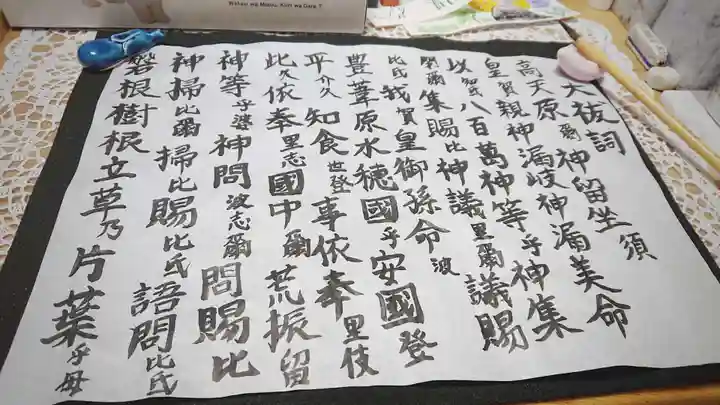 大祓詞
高天原爾神留坐須
皇賀親神漏岐神漏美命
以知氐八百萬神等乎神集
閉爾集賜比神議里爾議賜
比氐我賀皇御孫命波
豊葦原水穂國乎安國登
平介久知食世登事依奉里伎
此久依奉里志國中爾荒振留
神等乎婆神問波志爾問賜比
神掃比爾掃比賜比氐語問比氐
磐根樹根立草乃片葉乎母